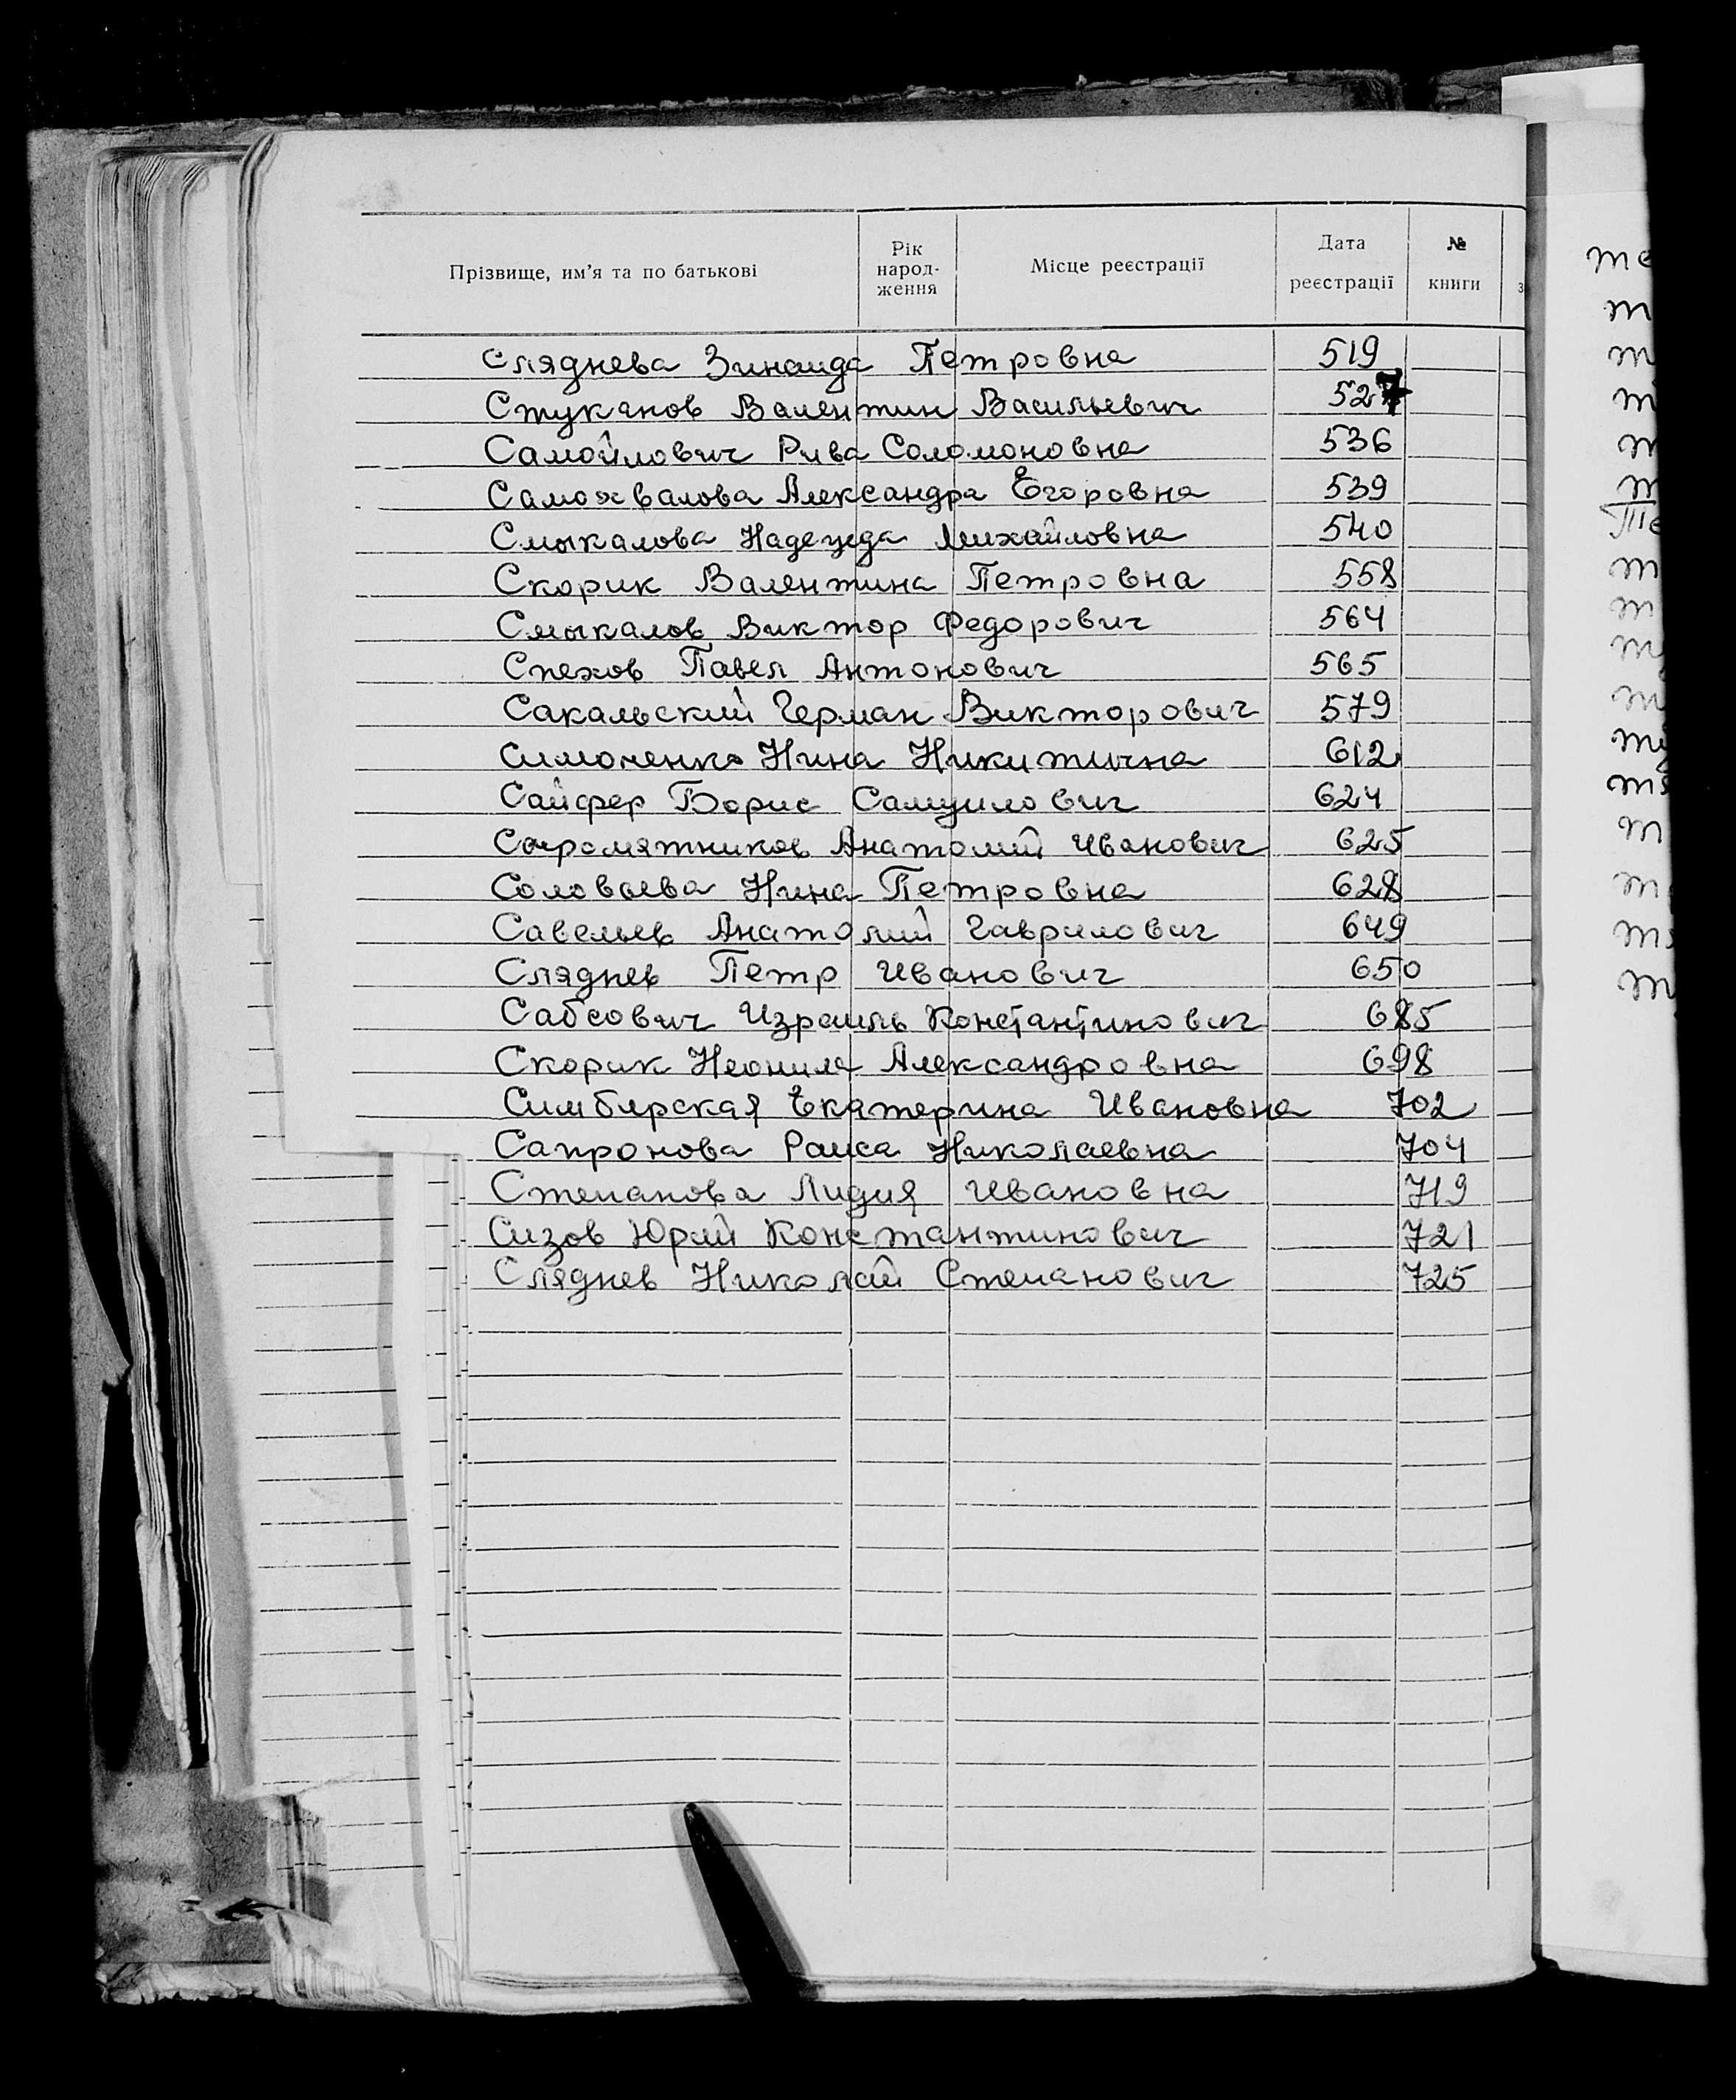 Прізвище, им'я та по батькові Рік народ-ження Місце реєстрації Дата реєстрації № книги
Сляднева Зинаида Петровна 519
Стуканов Валентин Васильевич 527
Самойлович Рива Соломоновна 536
Самохвалова Александра Егоровна 539
Смыкалова Надежда Михайловна 540
Скорик Валентина Петровна 558
Смыкалов Виктор Федорович 564
Спехов Павел Антонович 565
Сакальский Герман Викторович 579
Симоненко Нина Никитична 612
Сайфер Борис Самуилович 624
Сыромятников Анатолий Иванович 625
Соловьева Нина Петровна 628
Савельев Анатолий Гаврилович 649
Сляднев Петр Иванович 650
Сабсович Израиль Константинович 685
Скорик Неонила Александровна 698
Симбирская Екатерина Ивановна 702
Сапронова Раиса Николаевна 704
Степанова Лидия Ивановна 719
Сизов Юрий Константинович 721
Сляднев Николай Степанович 725